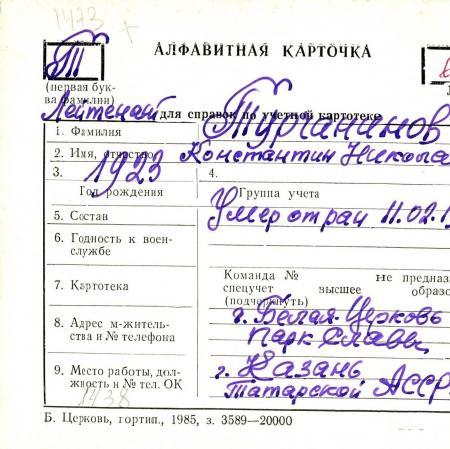 1473
АЛФАВИТНАЯ КАРТОЧКА
Т
(первая бук-
ва фамилии)
Лейтенант для справок по учетной картотеке
1. Фамилия Турганинов
2. Имя, отчество Константин Николае
3. 1923 4.
Год рождения Группа учета
5. Состав Умер от ран 11.02.1
6. Годность к воен-
службе
Команда № не предназ
7. Картотека спецучет высшее образо
(подчеркнуть)
г. Белая-Церковь
8. Адрес м-житель-
ства и № телефона Парк Славы
9. Место работы, дол-
жность и № тел. ОК г. Казань
Татарской АССР.
1438
Б. Церковь, гортип., 1985, з. 3589—20000